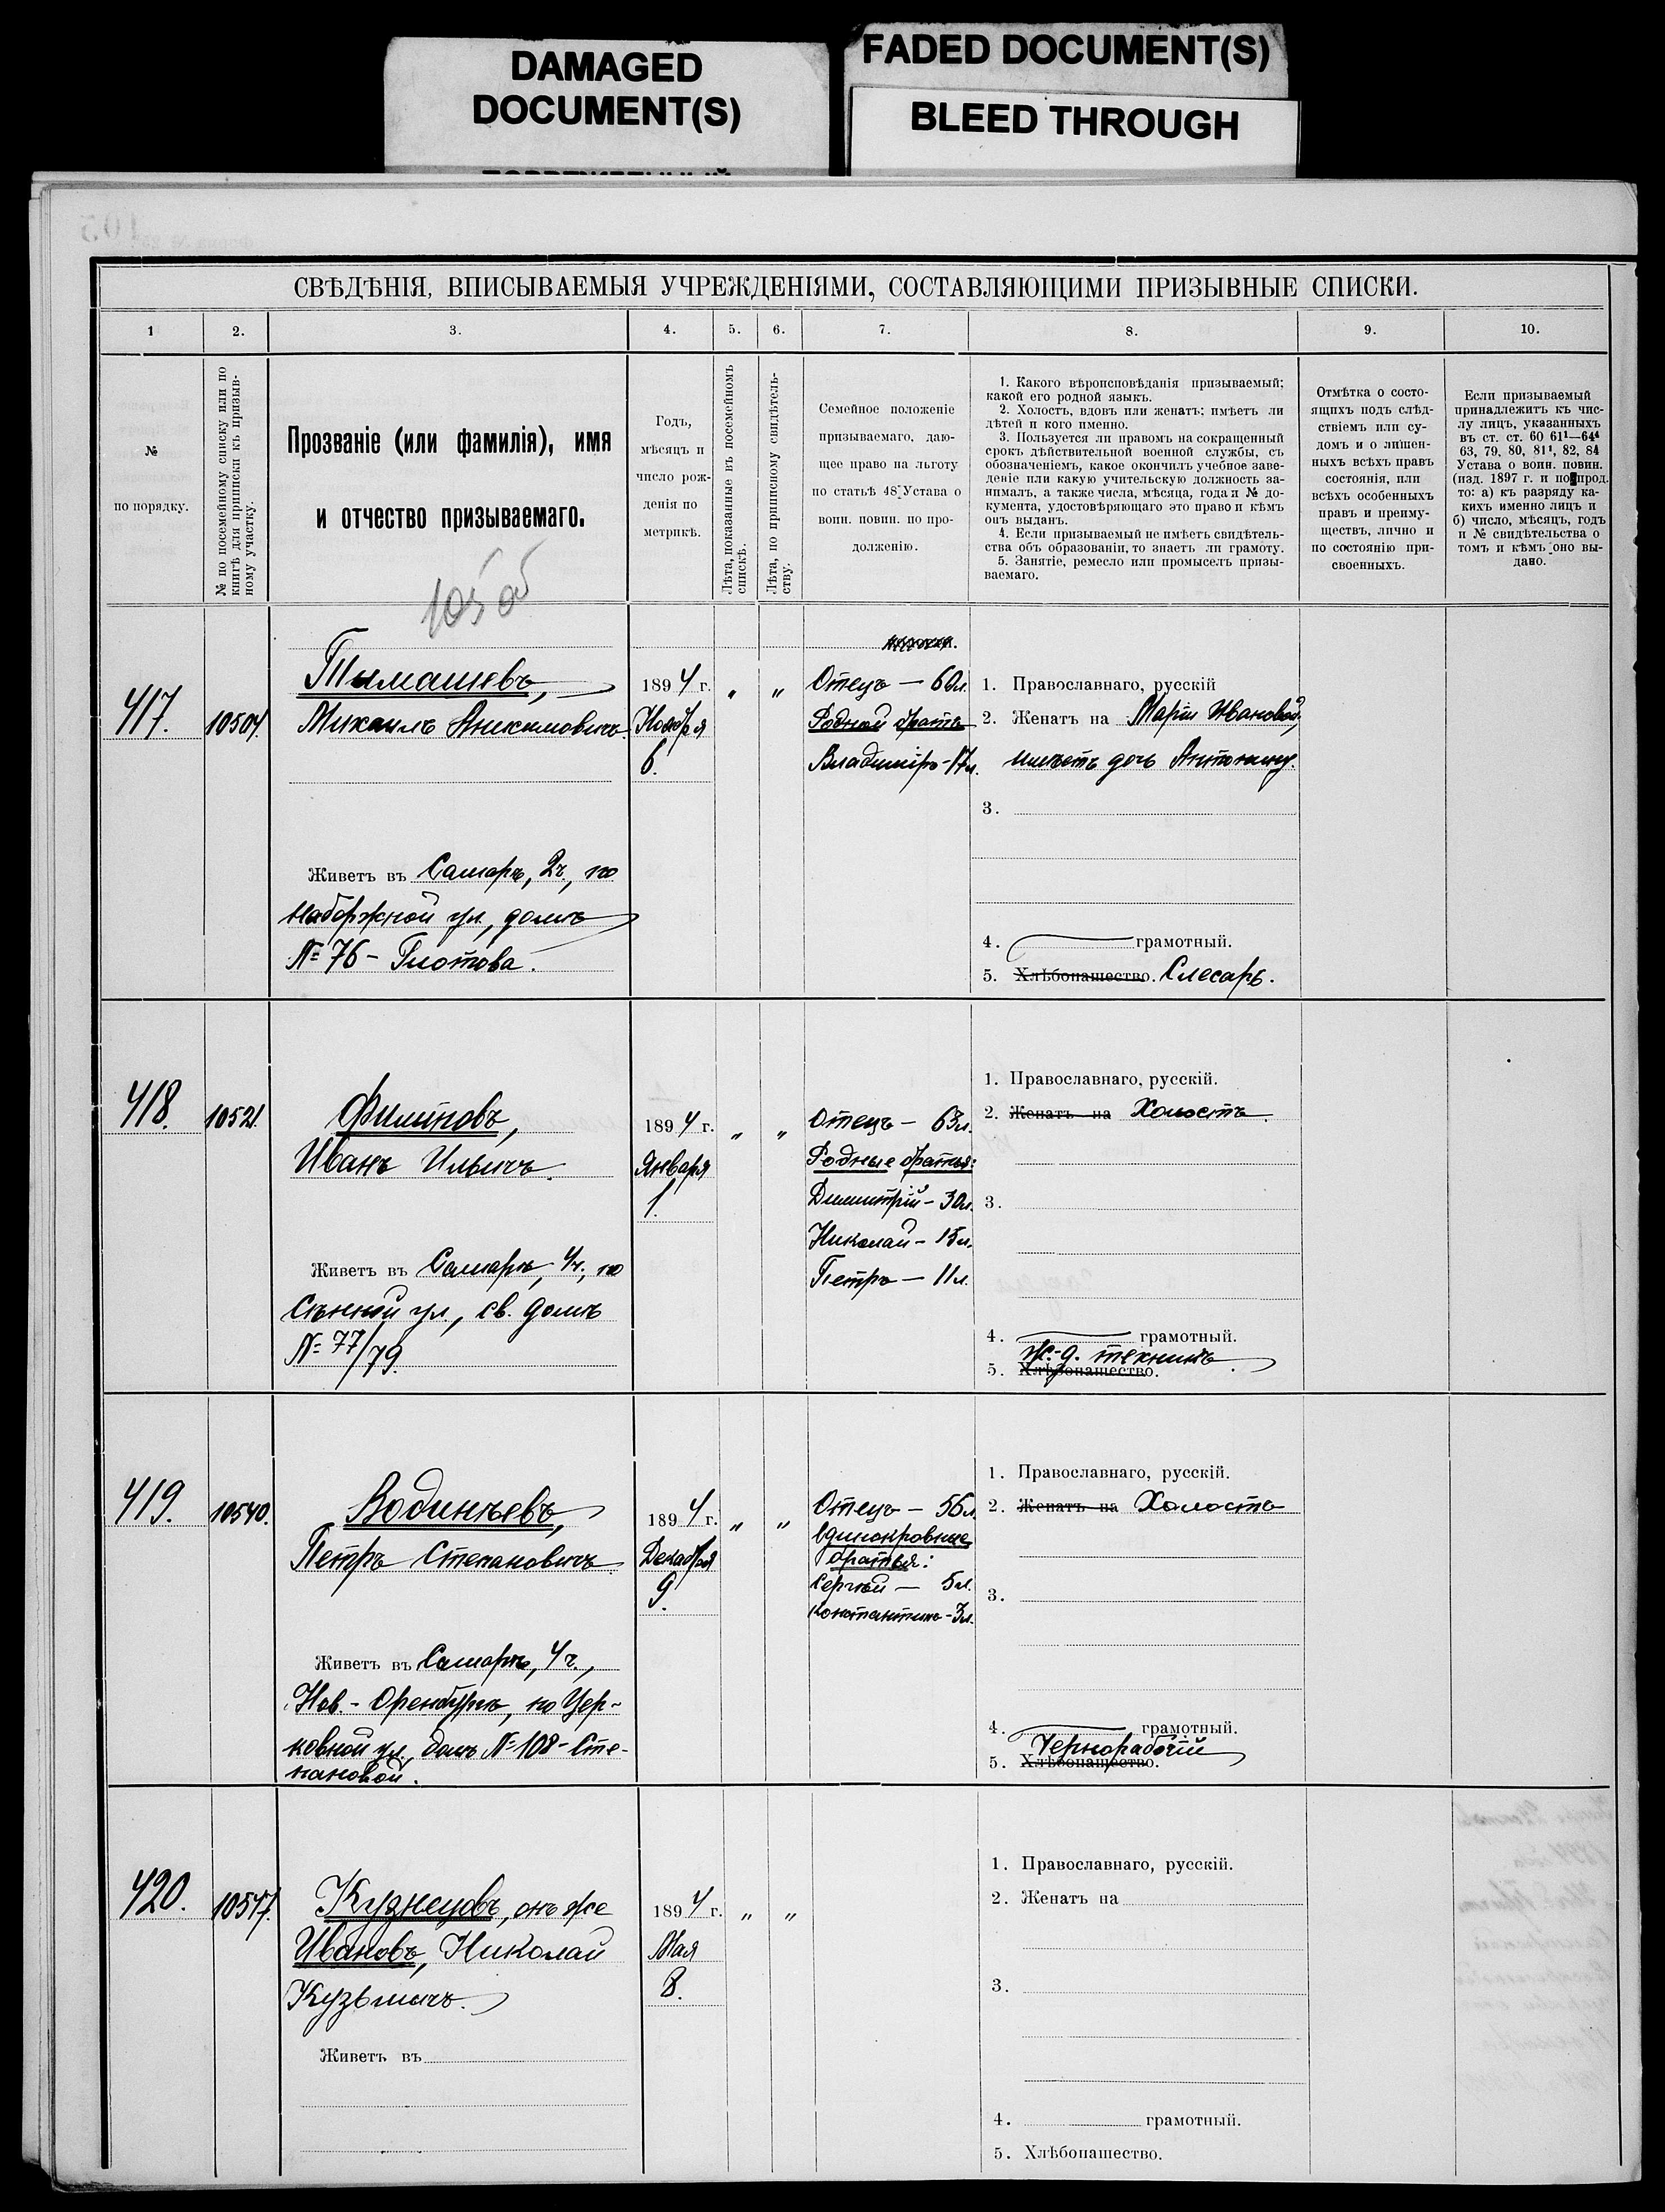 DAMAGED
DOCUMENT(S)
FADED DOCUMENT(S)
BLEED THROUGH
СВѢДѢНІЯ, ВПИСЫВАЕМЫЯ УЧРЕЖДЕНІЯМИ, СОСТАВЛЯЮЩИМИ ПРИЗЫВНЫЕ СПИСКИ.
1
2.
3.
4.
5.
6.
7.
8.
9.
10.
№
по порядку.
№ по посемейному списку или по
книгѣ для приписки къ призыв-
ному участку.
Прозваніе (или фамилія), имя
и отчество призываемаго.
105 об
Годъ,
мѣсяцъ и
число рож-
денія по
метрикѣ.
Лѣта, показанные въ посемейномъ
спискѣ.
Лѣта, по приписному свидѣтель-
ству.
Семейное положеніе
призываемаго, даю-
щее право на льготу
по статьѣ 48 Устава о
воин. повин. по про-
долженію.
1. Какого вѣроисповѣданія призываемый;
какой его родной языкъ.
2. Холостъ, вдовъ или женатъ; имѣетъ ли
дѣтей и кого именно.
3. Пользуется ли правомъ на сокращенный
срокъ дѣйствительной военной службы, съ
обозначеніемъ, какое окончилъ учебное заве-
деніе или какую учительскую должность за-
нималъ, а также числа, мѣсяца, года и № до-
кумента, удостовѣряющаго это право и кѣмъ
онъ выданъ.
4. Если призываемый не имѣетъ свидѣтель-
ства объ образованіи, то знаетъ ли грамоту.
5. Занятіе, ремесло или промыселъ призы-
ваемаго.
Отмѣтка о состо-
ящихъ подъ слѣд-
ствіемъ или су-
домъ и о лишен-
ныхъ всѣхъ правъ
состоянія, или
всѣхъ особенныхъ
правъ и преиму-
ществъ, лично и
по состоянію при-
своенныхъ.
Если призываемый
принадлежитъ къ чис-
лу лицъ, указанныхъ
въ ст. ст. 60 61¹—64⁴
63, 79, 80, 81¹, 82, 84
Устава о воин. повин.
(изд. 1897 г. и по прод.
то: а) къ разряду ка-
кихъ именно лицъ и
б) число, мѣсяцъ, годъ
и № свидѣтельства о
томъ и кѣмъ оно вы-
дано.
417.
10504.
Тимашевъ,
Михаилъ Анисимовичъ.
Живетъ въ Самарѣ, 2 ч., по
Набережной ул., домъ
№ 76 - Глотова.
1894 г.
Ноября
6.
„
„
Отецъ — 60 л.
Родной братъ
Владиміръ - 17 л.
1. Православнаго, русскій
2. Женатъ на Маріи Ивановой,
имѣетъ дочь Антонину.
3.
4. грамотный.
5. Хлѣбопашество. Слесарь.
418.
10521.
Филиповъ,
Иванъ Ильичъ.
Живетъ въ Самарѣ, 4 ч., по
Сѣнной ул., св. домъ
№ 77/79.
1894 г.
Января
1.
„
„
Отецъ — 63 л.
Родные братья:
Димитрій - 30 л.
Николай - 15 л.
Петръ — 11 л.
1. Православнаго, русскій.
2. Женатъ на Холостъ.
3.
4. грамотный.
Ж.-д. техникъ.
5. Хлѣбопашество.
419.
10540.
Водинѣевъ,
Петръ Степановичъ.
Живетъ въ Самарѣ, 4 ч.,
Нов.-Оренбургъ, по Цер-
ковной ул., домъ № 108 - Сте-
пановой.
1894 г.
Декабря
9.
„
„
Отецъ — 56 л.
Единокровные
братья:
Сергѣй — 5 л.
Константинъ - 3 л.
1. Православнаго, русскій.
2. Женатъ на Холостъ
3.
4. грамотный.
Чернорабочій
5. Хлѣбопашество.
420.
10547.
Кузнецовъ, онъ же
Ивановъ, Николай
Кузьмичъ.
Живетъ въ
1894 г.
Мая
8.
„
„
1. Православнаго, русскій.
2. Женатъ на
3.
4. грамотный.
5. Хлѣбопашество.